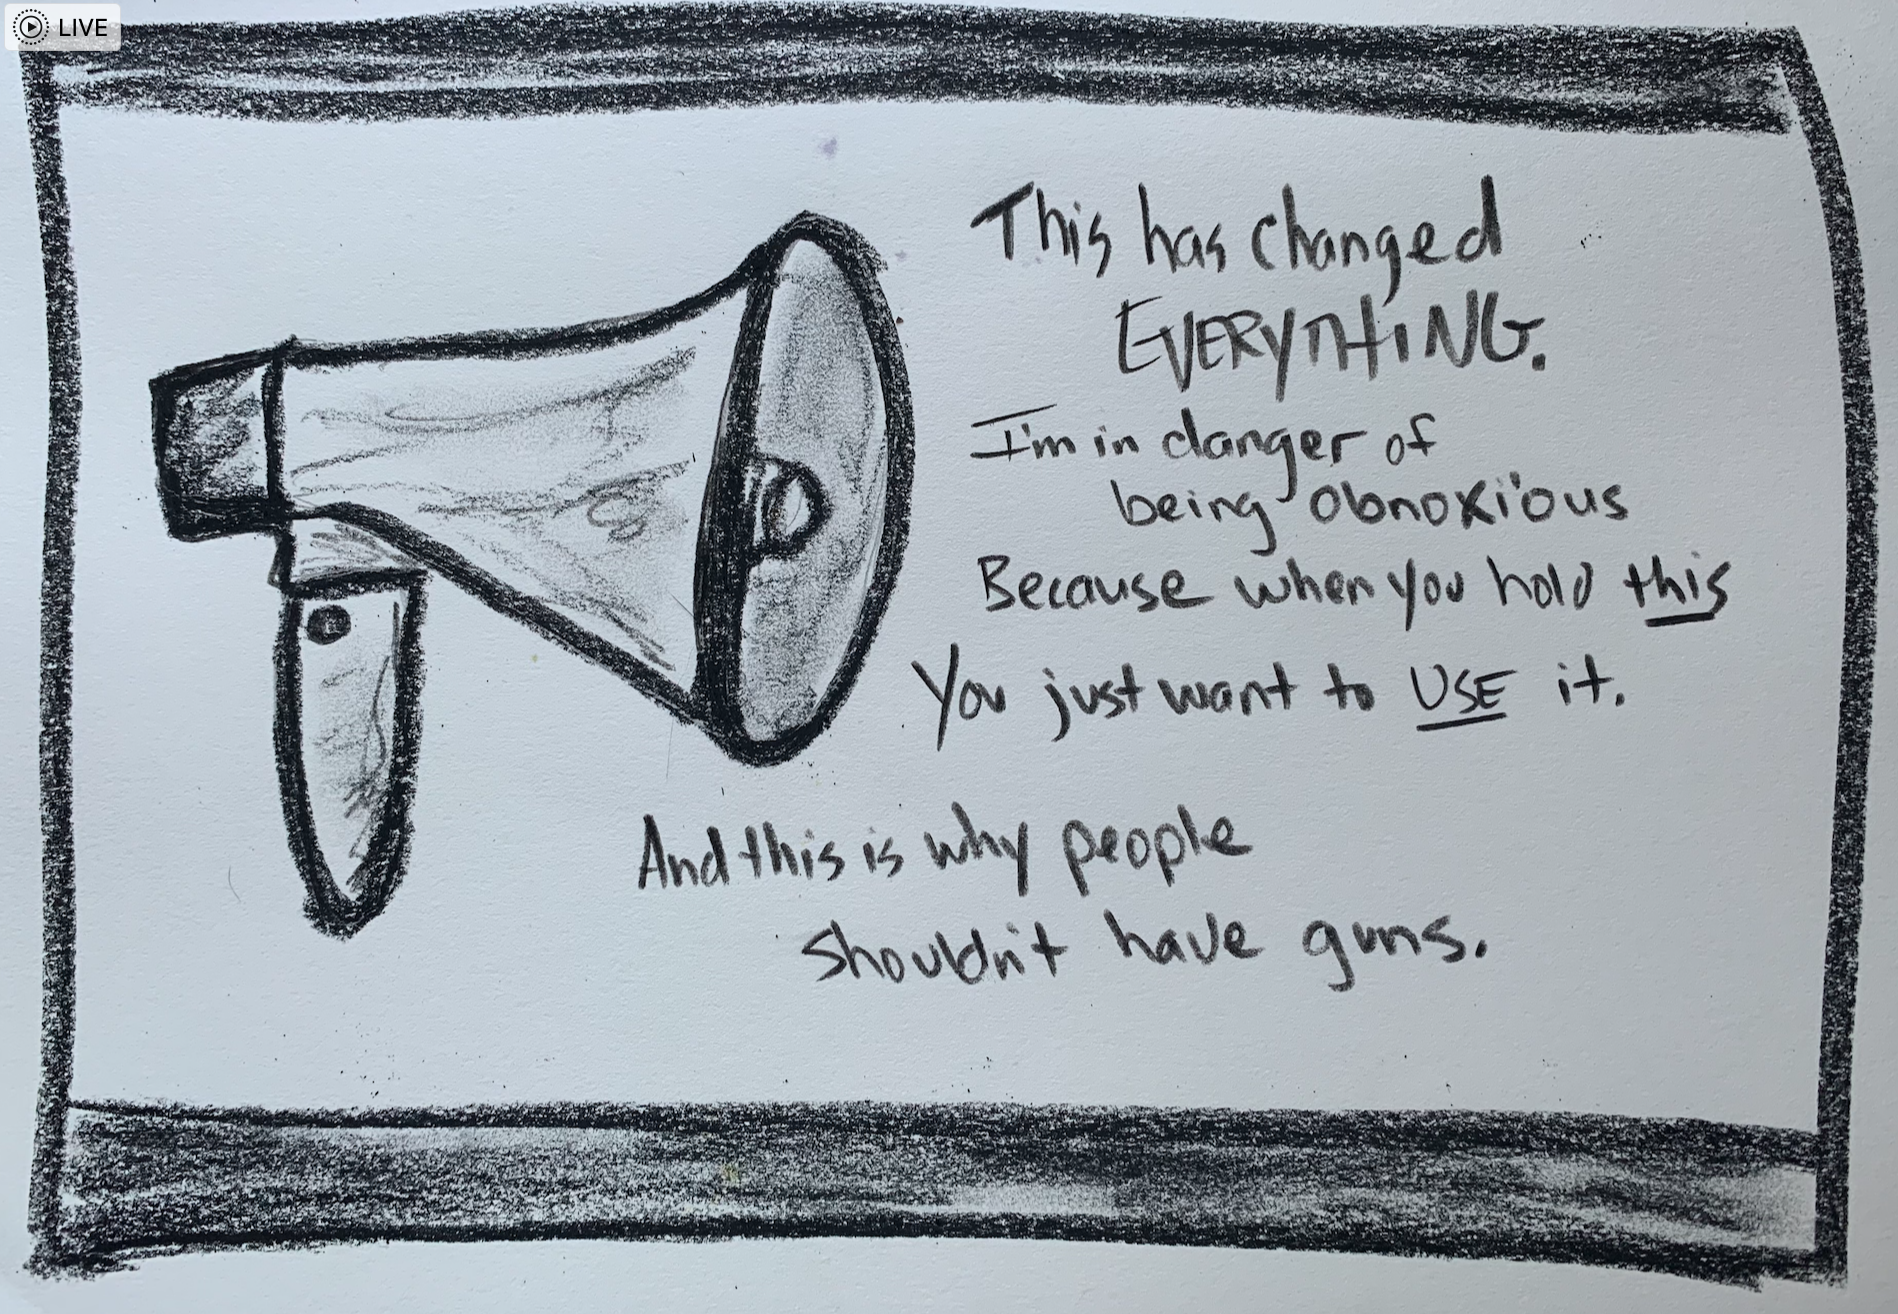 LIVE
This has changed
EVERYTHING.
I'm in danger of
being obnoxious
Because when you hold this
You just want to USE it.
And this is why people
shouldn't have guns.